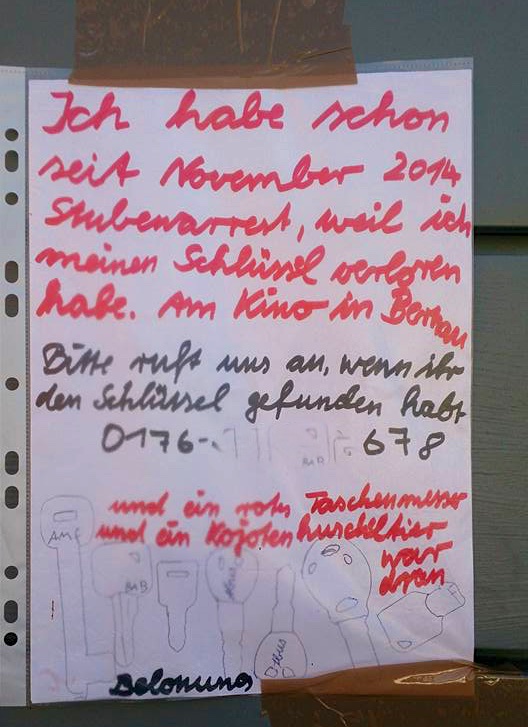 Ich habe schon
seit November 2014
Stubenarrest, weil ich
meinen Schlüssel verloren
habe. Am Kino in Bernau
Bitte ruft uns an, wenn ihr
den Schlüssel gefunden habt
0176- 678
und ein rotes Taschenmesser
und ein Kojoten kuscheltier
war
dran
AMF
BAB
Abus
Abus
Belonung